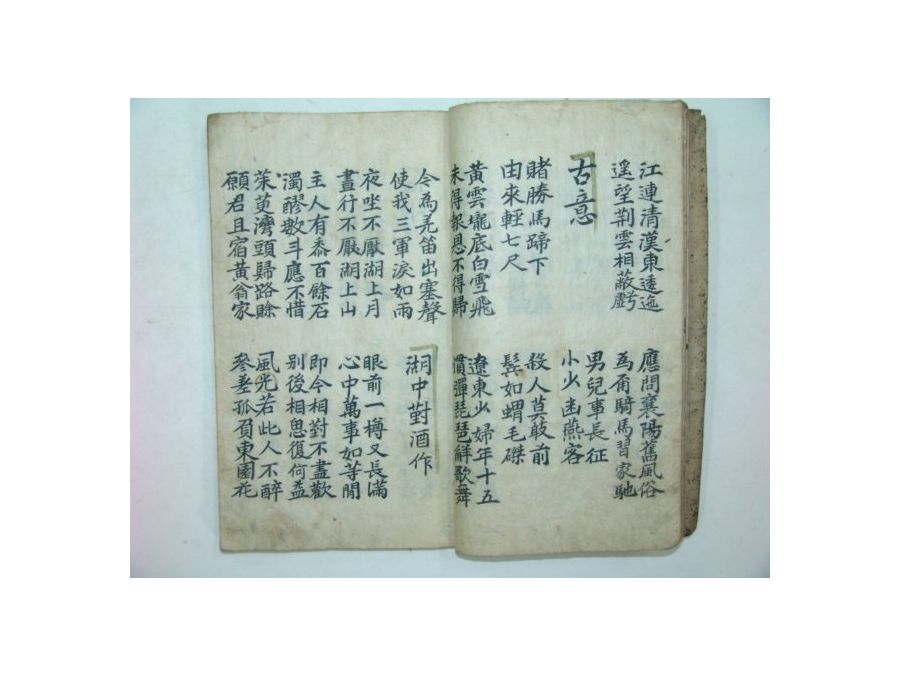 江連清漢東逶迤
遥望荆雲相蔽虧
應問襄陽舊風俗
為爾騎馬習家馳
古意
男兒事長征
小少幽燕客
賭勝馬蹄下
由來輕七尺
殺人莫敢前
髯如蝟毛磔
黃雲壠底白雪飛
未得報恩不得歸
遼東少婦年十五
慣彈琵琶解歌舞
令為羌笛出塞聲
使我三軍淚如雨
湖中對酒作
夜坐不厭湖上月
晝行不厭湖上山
眼前一樽又長滿
心中萬事如等閒
主人有黍百餘石
濁醪數斗應不惜
即今相對不盡歡
別後相思復何益
茱萸灣頭歸路賒
願君且宿黃翁家
風光若此人不醉
參差孤負東園花